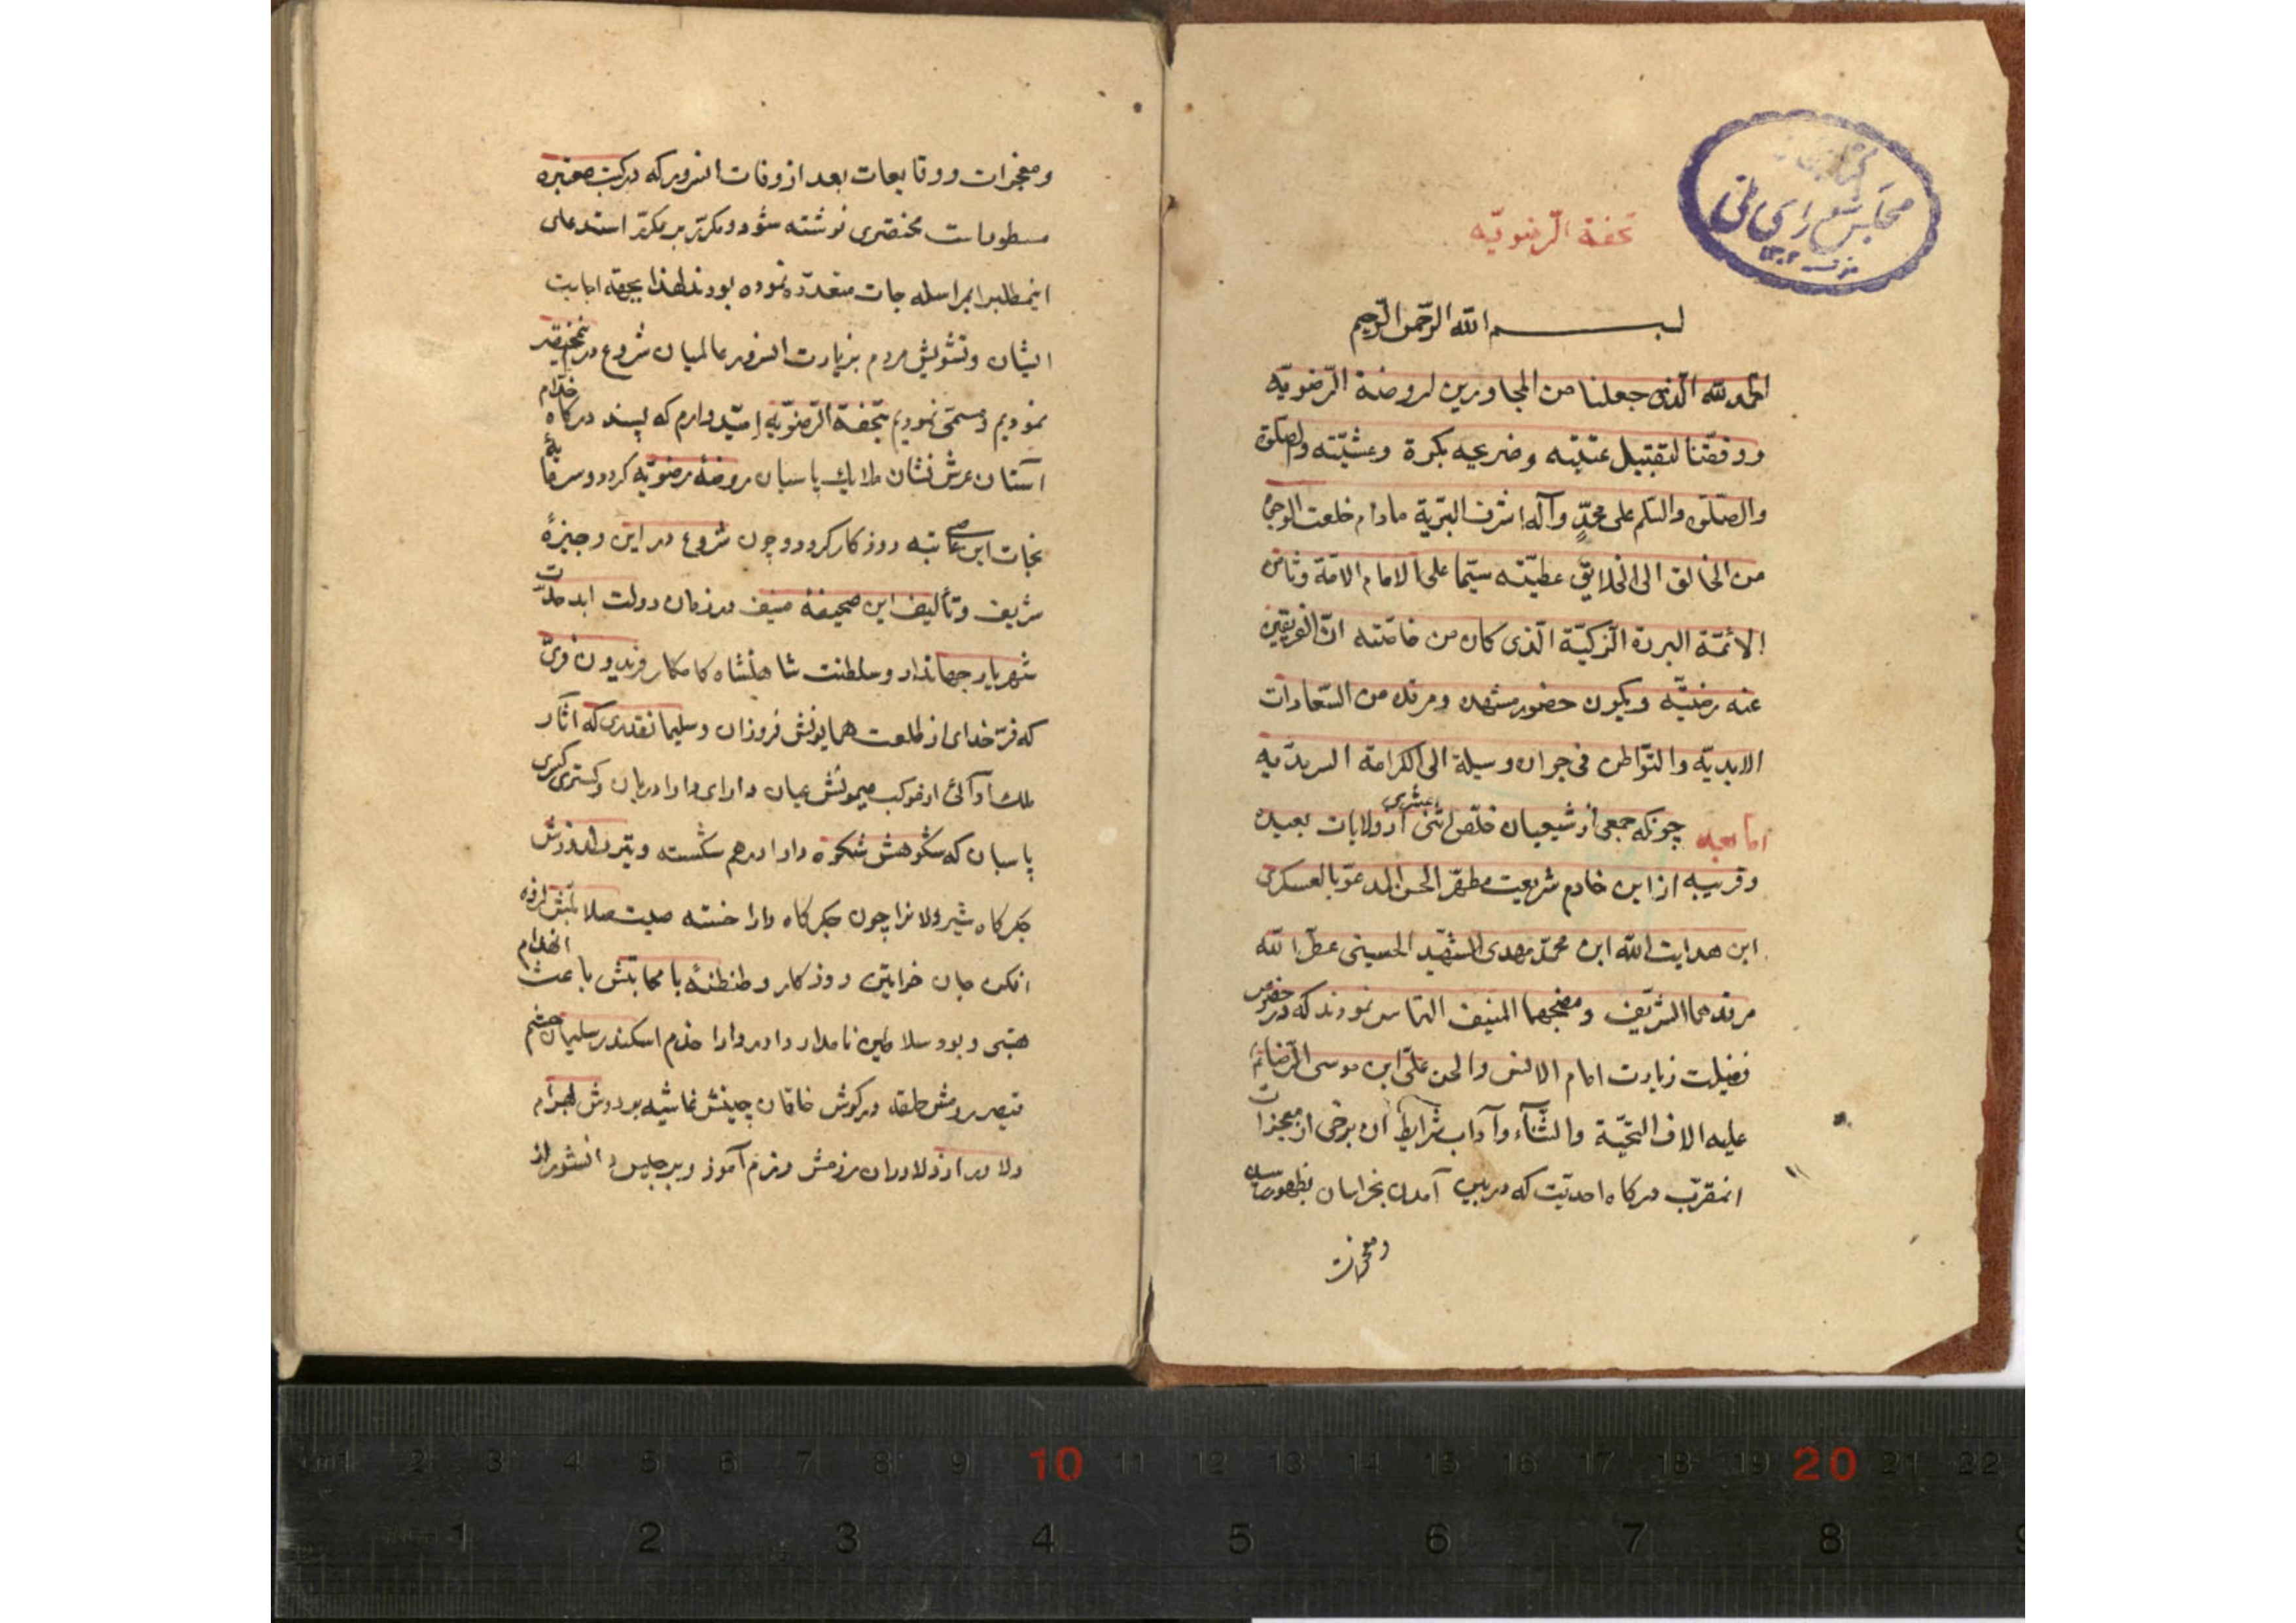 کتابخانه
مجلس شورای ملی
۱۳۰۲
تحفة الرّضویّه
بسم الله الرّحمن الرّحیم
الحمد لله الّذی جعلنا من المجاورین لروضة الرّضویّه
ووفّقنا لتقبیل عتبته وضریحه بکرة وعشیّته والصلوة
والصّلوة والسّلم علی محمّدٍ وآله اشرف البریّة مادام خلعت الوجود
من الخالق الی الخلایق عطیّته سیّما علی الامام الامّة وثامن
الائمّة البررة الزکیّة الّذی کان من خاصّته انّ الفریقین
عنه رضیّه ویکون حضور مشهده ومرقده من السّعادات
الابدیّه والتّواطن فی جواره وسیلة الی الکرامة السرمدیّه
امّا بعد چونکه جمعی از شیعیان خلّص اثنی عشری از ولایات بعیده
وقریبه از این خادم شریعت مطهّر الحسن المدعوّ بالعسکری
ابن هدایت الله ابن محمّد مهدی الشهید الحسینی عطّر الله
مرقدهما الشریف ومضجعهما المنیف التماس نمودند که در خصوص
فضیلت زیارت امام الانس والجن علی ابن موسی الرّضا
علیه الاف التحیّة والثناء وآداب وشرایط آن برخی از معجزات
انمقرّب درکاه احدیّت که در بین آمدن بخراسان بظهور رسیده
ومعجزات
ومعجزات ووقایعات بعد از وفات انسرور که در کتب معتبره
مسطور است مختصری نوشته شود ومکرّر بر مکرّر استدعای
اینمطلب را بمراسله جات متعدّده نموده بودند لهذا بجهة اجابت
ایشان وتشویش مردم بزیارت انسرور عالمیان شروع در اینمختصر
نمودیم ومسمّی نمودیم بتحفة الرّضویّه امّیدوارم که پسند درکاه خدّام
آستان عرش نشان ملایک پاسبان روضهٔ رضویّه کردد وسرمایهٔ
نجات این عاصی تبه روزکار کردد وچون شروع در این وجیزهٔ
شریف وتألیف این صحیفهٔ منیف در زمان دولت ابد مدّت
شهریار جهاندار وسلطنت شاهنشاه کامکار فریدون فرّی
که فرّ خدای از طلعت همایونش فروزان وسلیمانقدری که آثار
ملک آرائی از موکب میمونش عیان دارای دارا دربان وکسری کسری
پاسبان که شکوهش شکوه دارا درهم شکسته وتیر دلدوزش
جکرکاه شیردلانرا چون جکرکاه دارا خسته صیت صلابتش لرزه
افکن جان خواتین روزکار وطنطنهٔ با مهابتش باعث انهدام
هستی وبود سلاطین نامدار دادور دارا خدم اسکندر سلیمان حشم
قیصر رومش حلقه در کوش خاقان چینش غاشیه بر دوش بهرام
دلاور از دلاوران رزمش رزم آموز وبرجیس دانشور از